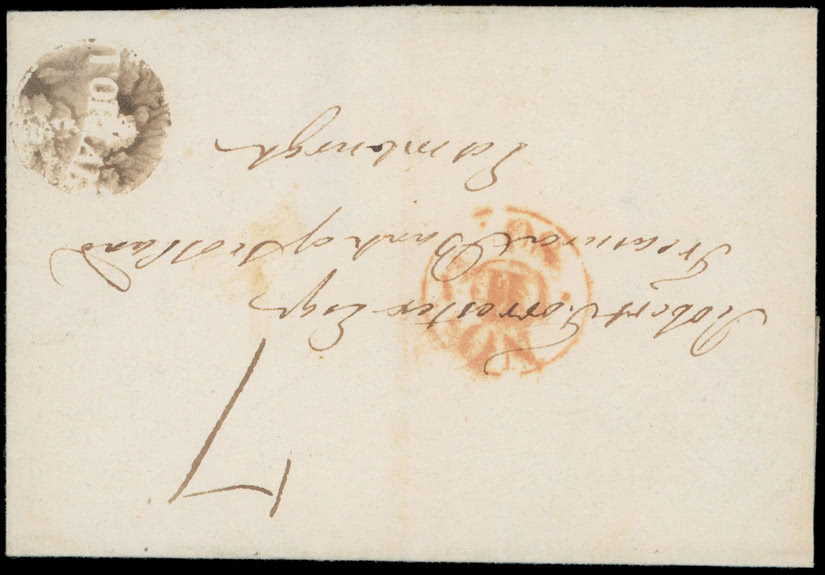 7
Robert Forrester Esqr
Treasurer Bank of Scotland
Edinburgh